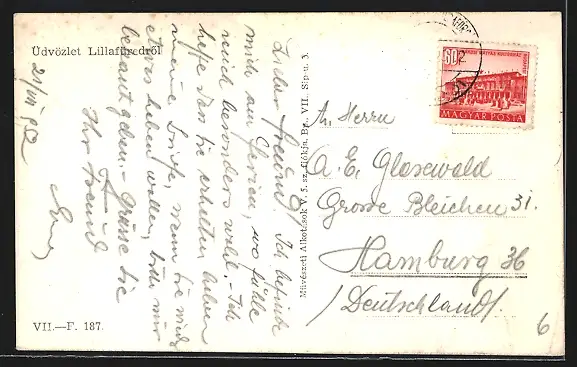 Üdvözlet Lillafüredről
21/VII. 952
Lieber Freund! Ich befinde
mich am Ferien, wo fühle
mich besonders wohl. - Ich
hoffe dass Sie erhalten haben
meine Briefe, wenn Sie noch
etwas haben wollen, bitte mir
bekannt geben. - Grüsse Sie
Ihr Freund
VII.—F. 187.
Művészeti Alkotások V. 5. sz. fiókja, Bp. VII. Síp u. 3.
60
MAGYAR POSTA
An Herrn
A. E. Glasewald
Grosse Bleichen 31.
Hamburg 36
/Deutschland/.
6